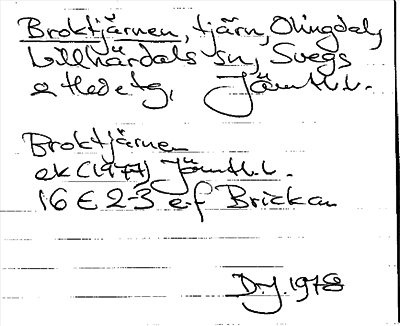 Broktjärnen, tjärn, Olingdal,
Lillhärdals sn, Svegs
o Hede tg, Jämtl.l.
Broktjärnen
ek (1977) Jämtl.l.
16 E 2-3 e-f Brickan
D.J. 1978